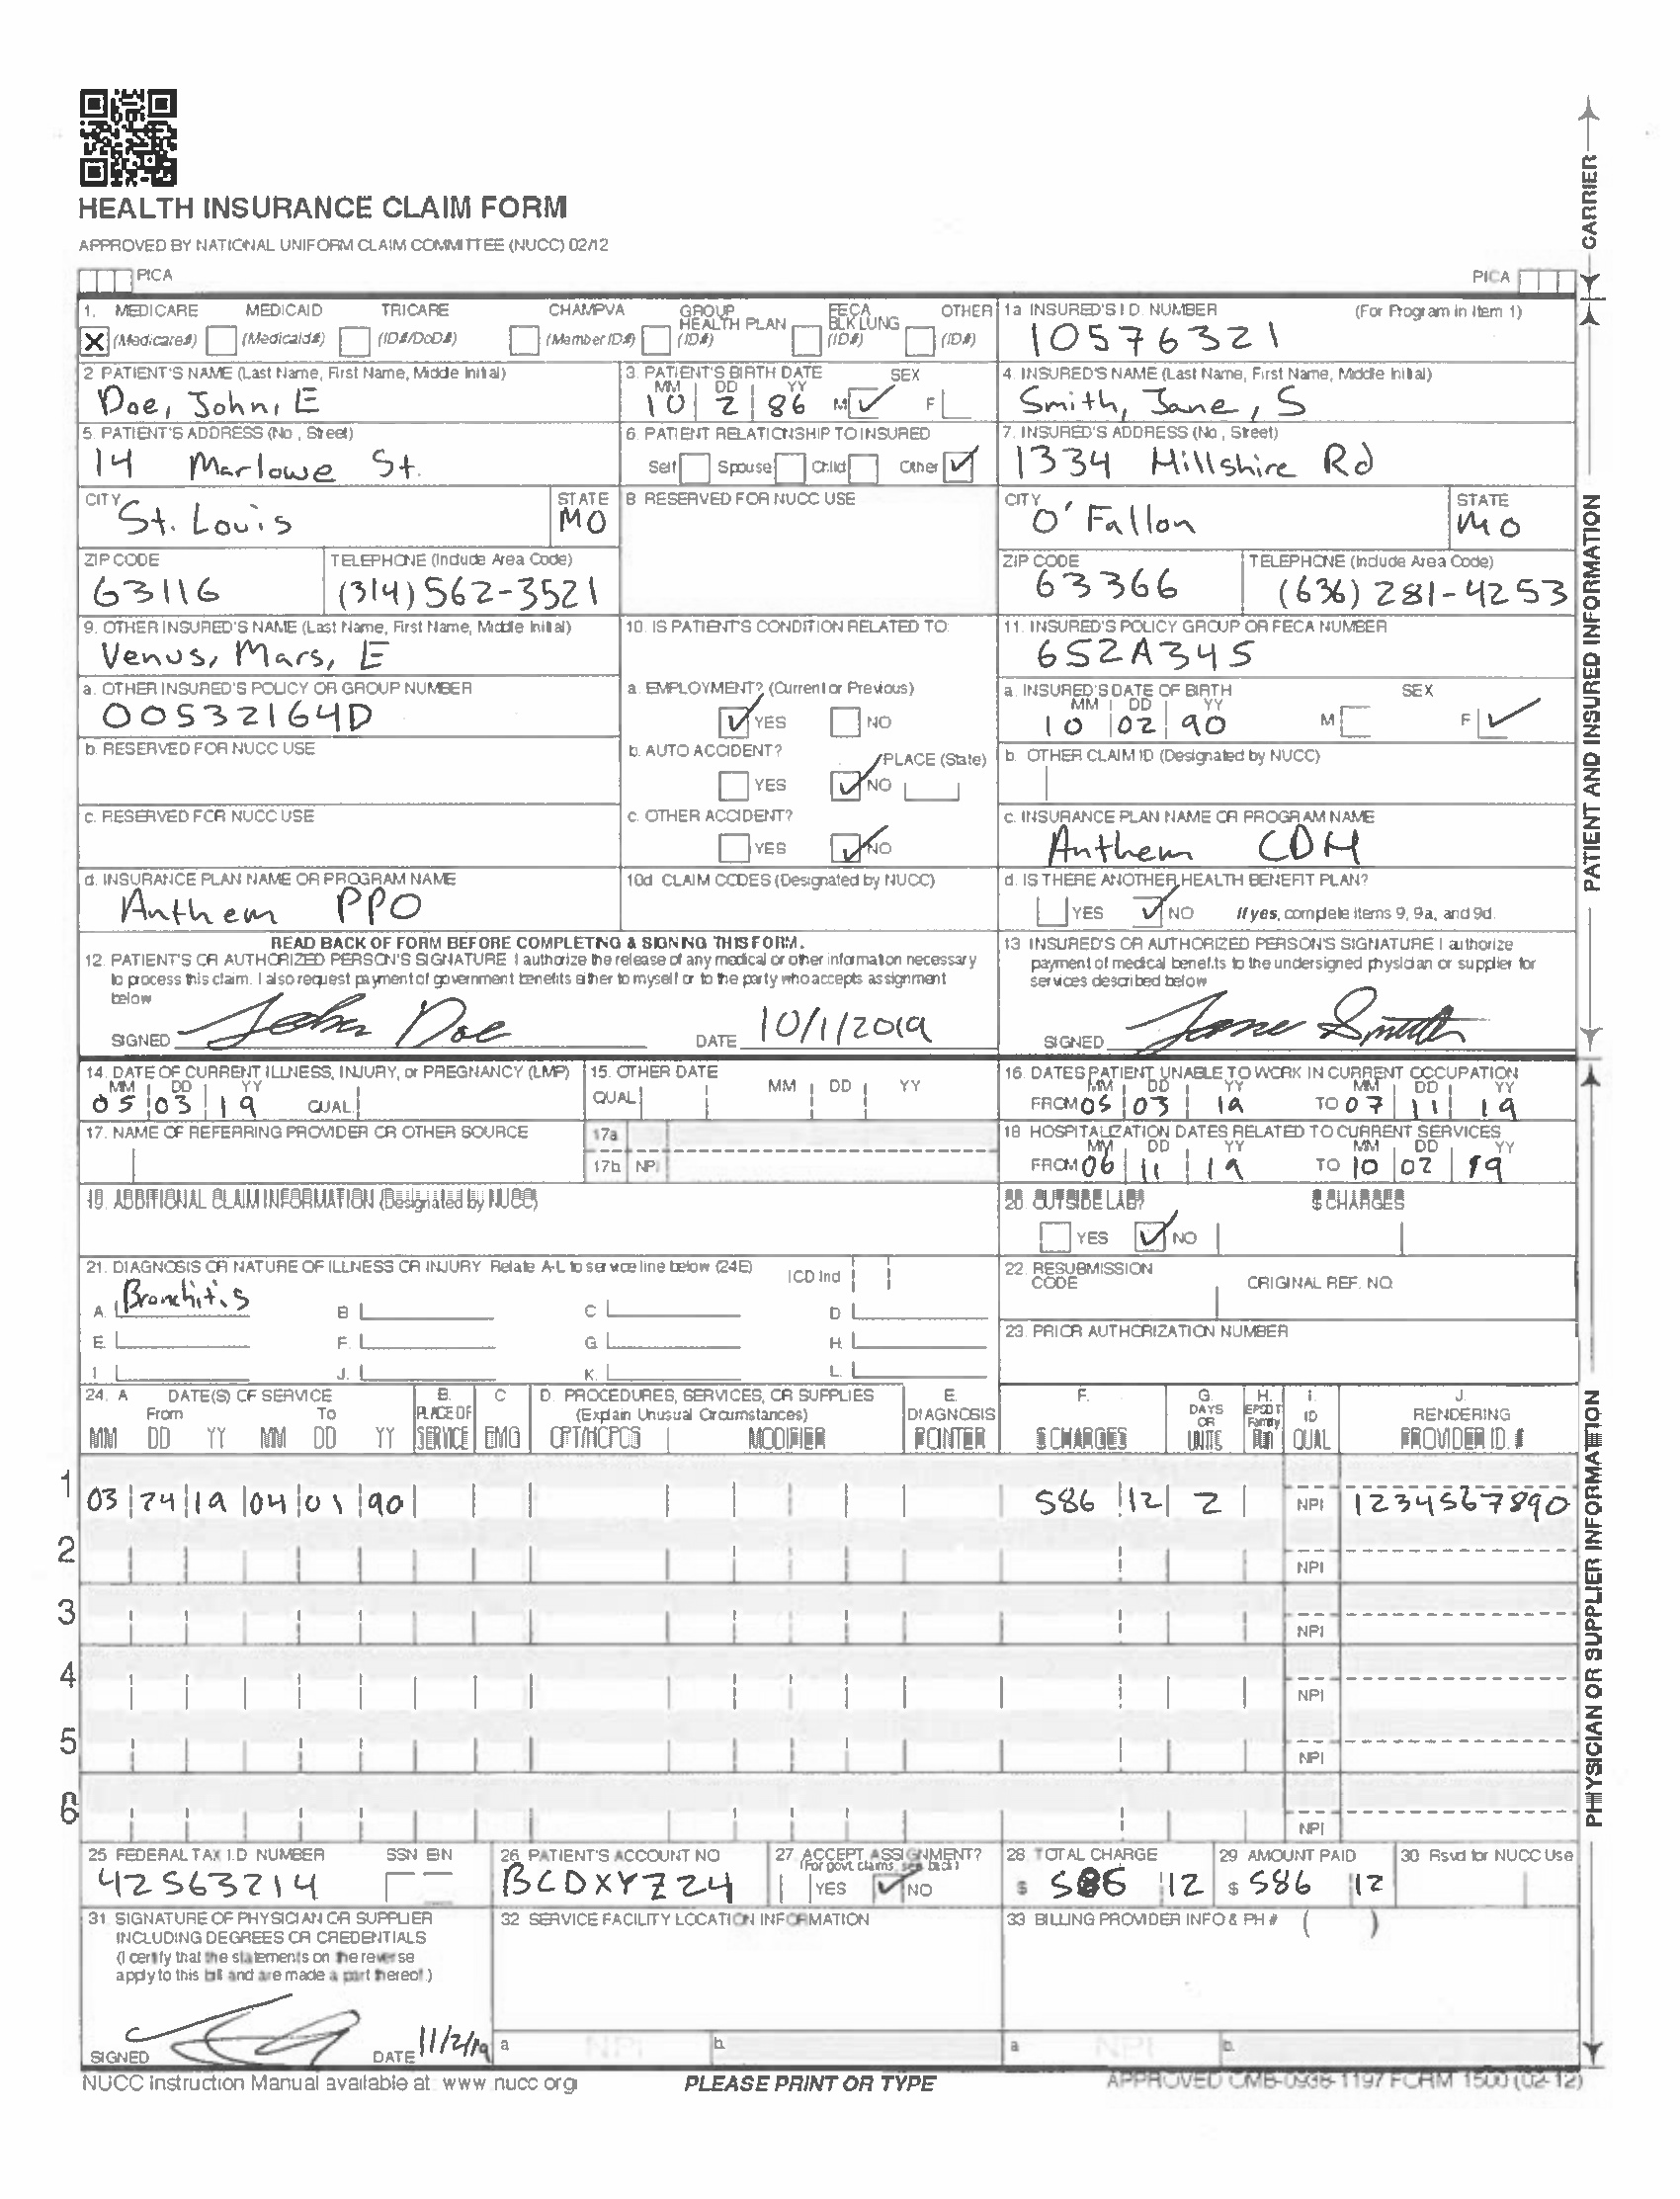 HEALTH INSURANCE CLAIM FORM
APPROVED BY NATIONAL UNIFORM CLAIM COMMITTEE (NUCC) 02/12
PICA
PICA
CARRIER
1. MEDICARE MEDICAID TRICARE CHAMPVA GROUP HEALTH PLAN FECA BLK LUNG OTHER
X (Medicare#) (Medicaid#) (ID#/DoD#) (Member ID#) (ID#) (ID#) (ID#)
1a INSURED'S I.D. NUMBER (For Program in Item 1)
10576321
2 PATIENT'S NAME (Last Name, First Name, Middle Initial)
Doe, John, E
3. PATIENT'S BIRTH DATE SEX
MM DD YY
10 2 86 M ✓ F
4. INSURED'S NAME (Last Name, First Name, Middle Initial)
Smith, Jane, S
5. PATIENT'S ADDRESS (No., Street)
14 Marlowe St.
6. PATIENT RELATIONSHIP TO INSURED
Self Spouse Child Other ✓
7. INSURED'S ADDRESS (No., Street)
1334 Hillshire Rd
CITY STATE
St. Louis MO
8 RESERVED FOR NUCC USE
CITY STATE
O'Fallon MO
ZIP CODE TELEPHONE (Include Area Code)
63116 (314) 562-3521
ZIP CODE TELEPHONE (Include Area Code)
63366 (636) 281-4253
9. OTHER INSURED'S NAME (Last Name, First Name, Middle Initial)
Venus, Mars, E
10. IS PATIENT'S CONDITION RELATED TO:
11. INSURED'S POLICY GROUP OR FECA NUMBER
652A345
a. OTHER INSURED'S POLICY OR GROUP NUMBER
00532164D
a. EMPLOYMENT? (Current or Previous)
✓ YES NO
a. INSURED'S DATE OF BIRTH SEX
MM DD YY
10 02 90 M F ✓
b. RESERVED FOR NUCC USE
b. AUTO ACCIDENT? PLACE (State)
YES ✓ NO
b. OTHER CLAIM ID (Designated by NUCC)
c. RESERVED FOR NUCC USE
c. OTHER ACCIDENT?
YES ✓ NO
c. INSURANCE PLAN NAME OR PROGRAM NAME
Anthem CDH
d. INSURANCE PLAN NAME OR PROGRAM NAME
Anthem PPO
10d CLAIM CODES (Designated by NUCC)
d. IS THERE ANOTHER HEALTH BENEFIT PLAN?
YES ✓ NO If yes, complete items 9, 9a, and 9d.
PATIENT AND INSURED INFORMATION
READ BACK OF FORM BEFORE COMPLETING & SIGNING THIS FORM.
12. PATIENT'S OR AUTHORIZED PERSON'S SIGNATURE I authorize the release of any medical or other information necessary
to process this claim. I also request payment of government benefits either to myself or to the party who accepts assignment
below
SIGNED John Doe DATE 10/1/2019
13 INSURED'S OR AUTHORIZED PERSON'S SIGNATURE I authorize
payment of medical benefits to the undersigned physician or supplier for
services described below
SIGNED Jane Smith
14. DATE OF CURRENT ILLNESS, INJURY, or PREGNANCY (LMP)
MM DD YY
05 03 19 QUAL
15. OTHER DATE
QUAL MM DD YY
16. DATES PATIENT UNABLE TO WORK IN CURRENT OCCUPATION
MM DD YY MM DD YY
FROM 05 03 19 TO 07 11 19
17. NAME OF REFERRING PROVIDER OR OTHER SOURCE
17a
17b NPI
18 HOSPITALIZATION DATES RELATED TO CURRENT SERVICES
MM DD YY MM DD YY
FROM 06 11 19 TO 10 02 19
19. ADDITIONAL CLAIM INFORMATION (Designated by NUCC)
20. OUTSIDE LAB? $ CHARGES
YES ✓ NO
21. DIAGNOSIS OR NATURE OF ILLNESS OR INJURY Relate A-L to service line below (24E) ICD Ind
A. Bronchitis B C D
E. F. G H.
I. J. K. L.
22. RESUBMISSION CODE ORIGINAL REF. NO.
23. PRIOR AUTHORIZATION NUMBER
24. A DATE(S) OF SERVICE B. C D. PROCEDURES, SERVICES, OR SUPPLIES E. F. G. H. I. J.
From To PLACE OF (Explain Unusual Circumstances) DIAGNOSIS DAYS OR EPSDT Family ID RENDERING
MM DD YY MM DD YY SERVICE EMG CPT/HCPCS MODIFIER POINTER $ CHARGES UNITS Plan QUAL PROVIDER ID. #
1 03 24 19 04 01 90 586 12 2 NPI 1234567890
2 NPI
3 NPI
4 NPI
5 NPI
6 NPI
PHYSICIAN OR SUPPLIER INFORMATION
25 FEDERAL TAX I.D NUMBER SSN EIN
42563214
26 PATIENT'S ACCOUNT NO
BCDXYZ24
27 ACCEPT ASSIGNMENT?
(For govt. claims, see back)
YES ✓ NO
28 TOTAL CHARGE
$ 586 12
29 AMOUNT PAID
$ 586 12
30 Rsvd for NUCC Use
31. SIGNATURE OF PHYSICIAN OR SUPPLIER
INCLUDING DEGREES OR CREDENTIALS
(I certify that the statements on the reverse
apply to this bill and are made a part thereof.)
SIGNED DATE 11/2/19
32 SERVICE FACILITY LOCATION INFORMATION
a NPI b.
33 BILLING PROVIDER INFO & PH # ( )
a NPI b.
NUCC Instruction Manual available at: www.nucc.org
PLEASE PRINT OR TYPE
APPROVED OMB-0938-1197 FORM 1500 (02-12)